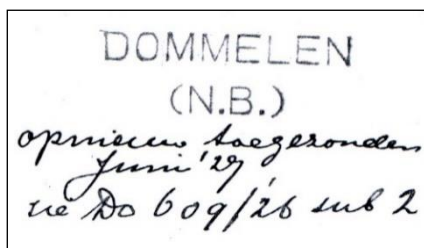 DOMMELEN
(N.B.)
opnieuw toegezonden
Juni '27
zie Do 609/'26 sub 2